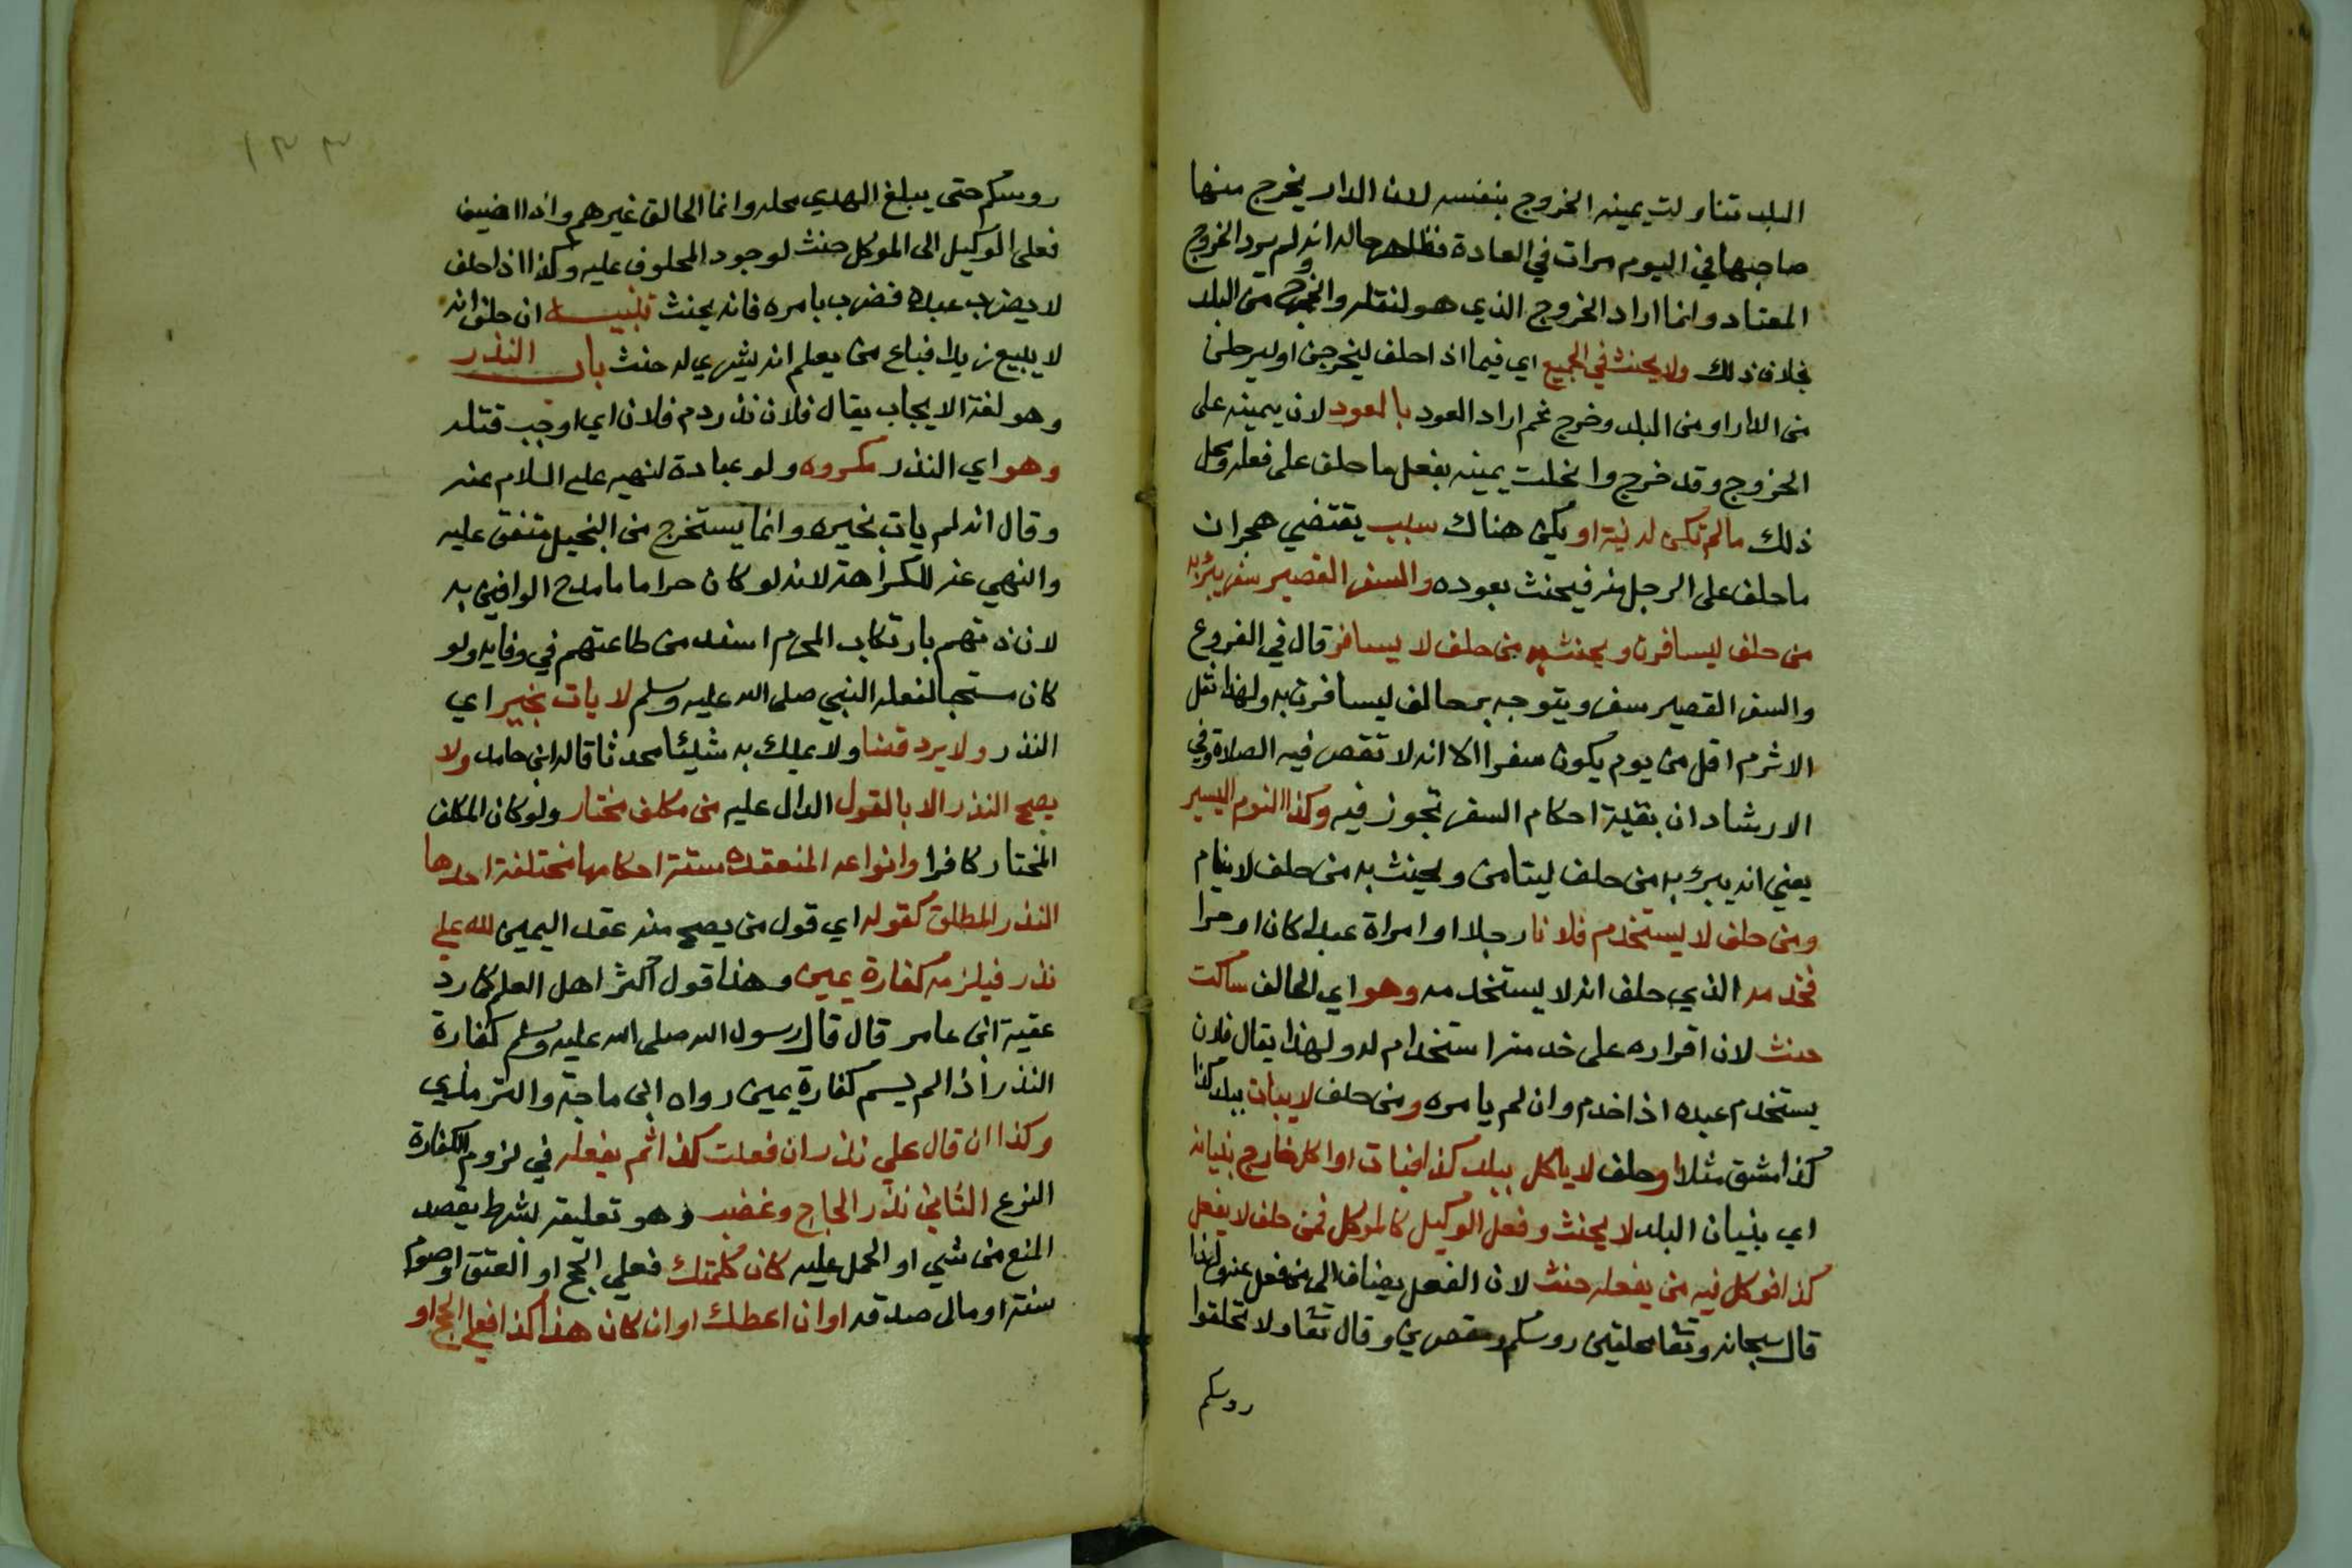 البلد تناولت يمينه الخروج بنفسه لان الدار يخرج منها
صاحبها في اليوم مرات في العادة فظاهر حاله انه لم يرد الخروج
المعتاد وانما اراد الخروج الذي هو لنقله والخروج من البلد
بخلاف ذلك ولا يحنث في الجميع اي فيما اذا حلف ليخرجن او ليرحلن
من الدار او من البلد وخرج ثم اراد العود بالعود لان يمينه على
الخروج وقد خرج وانحلت يمينه بفعل ما حلف على فعله ومحل
ذلك مالم تكن له نية او يكن هناك سبب يقتضي هجران
ما حلف على الرحيل منه فيحنث بعوده والسفر القصير سفر يبر به
من حلف ليسافرن ويحنث به من حلف لا يسافر قال في الفروع
والسفر القصير سفر ويتوجه بر حالف ليسافرن به ولهذا نقل
الاثرم اقل من يوم يكون سفرا الا انه لا تقصر فيه الصلاة وفي
الارشاد ان بقية احكام السفر تجوز فيه وكذا النوم اليسير
يعني انه يبر به من حلف لينامن ويحنث به من حلف لا ينام
ومن حلف لا يستخدم فلانا رجلا او امراة عبدا كان او حرا
فخدمه الذي حلف انه لا يستخدمه وهو اي الحالف ساكت
حنث لان اقراره على خدمته استخدام له ولهذا يقال فلان
يستخدم عبده اذا خدم وان لم يامره ومن حلف لا يبات ببلد كذا
كدمشق مثلا او حلف لا ياكل ببلد كذا فبات او اكل خارج بنيانه
اي بنيان البلد لا يحنث وفعل الوكيل كالموكل فمن حلف لا يفعل
كذا فوكل فيه من يفعله حنث لان الفعل يضاف الى من فعل عنه ولهذا
قال سبحانه وتعا محلقين روسكم ومقصرين وقال تعا ولا تحلقوا
روسكم
١٣٣
روسكم حتى يبلغ الهدي محله وانما الحالق غيرهم واذا اضيف
فعل الوكيل الى الموكل حنث لوجود المحلوف عليه وكذا اذا حلف
لا يضرب عبده فضرب بامره فانه يحنث تنبيه ان حلف انه
لا يبيع زيدا فباع من يعلم انه يشتري له حنث باب النذر
وهو لغة الايجاب يقال فلان نذر دم فلان اي اوجب قتله
وهو اي النذر مكروه ولو عبادة لنهيه عليه السلام عنه
وقال انه لم يات بخير وانما يستخرج من البخيل متفق عليه
والنهي عنه للكراهة لانه لو كان حراما ما مدح الوافين به
لان ذنبهم بارتكاب المحرم اشد من طاعتهم في وفايه ولو
كان مستحبا لفعله النبي صلى الله عليه وسلم لا يات بخير اي
النذر ولا يرد قضا ولا يملك به شيئا محدثا قاله ابن حامد ولا
يصح النذر الا بالقول الدال عليه من مكلف مختار ولو كان المكلف
المختار كافرا وانواعه المنعقدة ستة احكامها مختلفة احدها
النذر المطلق كقوله اي قول من يصح منه عقد اليمين لله علي
نذر فيلزمه كفارة يمين وهذا قول اكثر اهل العلم كما رد
عقبة ابن عامر قال قال رسول الله صلى الله عليه وسلم كفارة
النذر اذا لم يسم كفارة يمين رواه ابن ماجة والترمذي
وكذا ان قال علي نذر ان فعلت كذا ثم يفعله في لزوم الكفارة
النوع الثاني نذر لجاج وغضب وهو تعليقه بشرط يقصد
المنع من شي او الحمل عليه كان كلمتك فعلي الحج او العتق او صوم
سنة او مالي صدقه او ان اعطك او ان كان هذا كذا فعلي الحج او